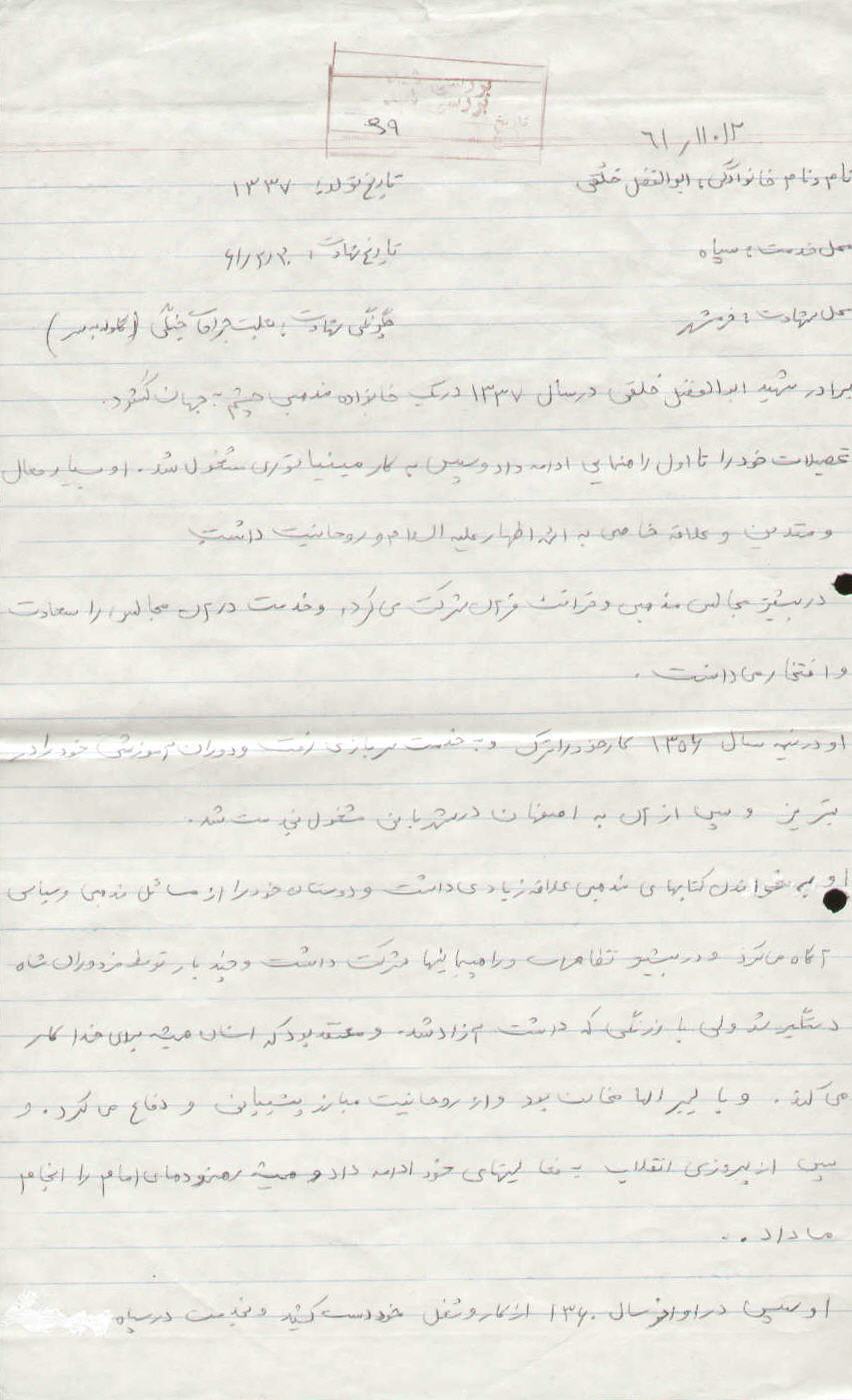 ۶۱/۱۱/۰۱۲
۳۹
نام و نام خانوادگی: ابوالفضل خلقی    تاریخ تولد: ۱۳۳۷
محل خدمت: سپاه    تاریخ شهادت: ۶۱/۲/۳۰
محل شهادت: خرمشهر    چگونگی شهادت: بعلت جراحات جنگی (گلوله به سر)
برادر شهید ابوالفضل خلقی در سال ۱۳۳۷ در یک خانواده مذهبی چشم به جهان گشود.
تحصیلات خود را تا اول راهنمایی ادامه داد و سپس به کار مینیاتوری مشغول شد. او بسیار فعال
و متدین و علاقه خاصی به ائمه اطهار علیه السلام و روحانیت داشت
در بیشتر مجالس مذهبی و قرائت قرآن شرکت می کرد، و خدمت در آن مجالس را سعادت
و افتخار می دانست.
او در نیمه سال ۱۳۵۶ کار خود را ترک و به خدمت سربازی رفت و دوران آموزشی خود را در
تبریز و پس از آن به اصفهان در شهربانی مشغول بخدمت شد.
او به خواندن کتابهای مذهبی علاقه زیادی داشت و دوستان خود را از مسائل مذهبی و سیاسی
آگاه می کرد و در بیشتر تظاهرات و راهپیمائیها شرکت داشت و چند بار توسط مزدوران شاه
دستگیر شد ولی با زرنگی که داشت آزاد شد. و معتقد بود که انسان همیشه برای خدا کار
می کند. و با لیبرالها مخالف بود و از روحانیت مبارز پشتیبانی و دفاع می کرد. و
پس از پیروزی انقلاب به فعالیتهای خود ادامه داد و همیشه رهنمودهای امام را انجام
می داد..
او سپس در اواخر سال ۱۳۶۰ از کار و شغل خود دست کشید و بخدمت در سپاه